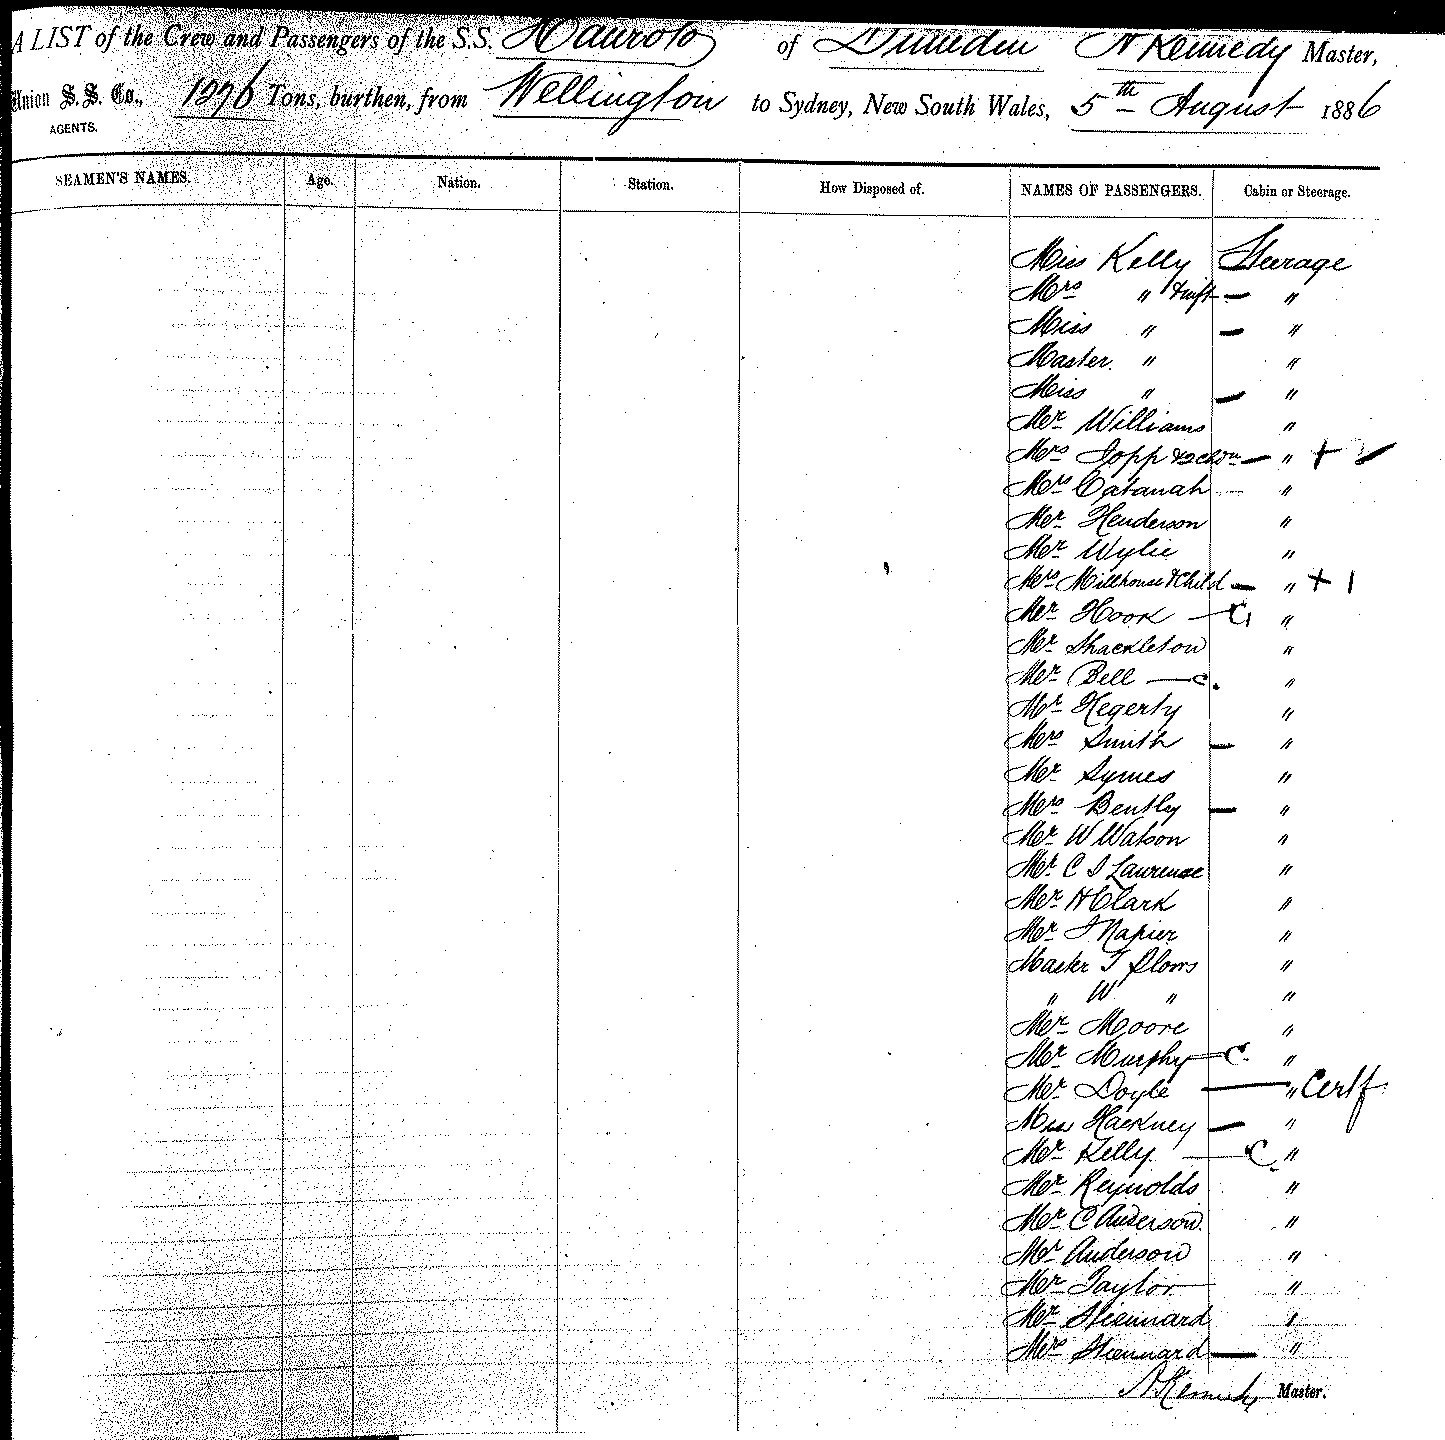 A LIST of the Crew and Passengers of the S.S. Hauroto of Dunedin N Kennedy Master,
Union S. S. Co., 1276 Tons, burthen, from Wellington to Sydney, New South Wales, 5th August 1886
AGENTS.
SEAMEN'S NAMES. Age. Nation. Station. How Disposed of. NAMES OF PASSENGERS. Cabin or Steerage.
Miss Kelly Steerage
Mrs " — "
Miss " — "
Master. " "
Miss " — "
Mr Williams "
Mrs Jopp & 2 chdn — " + 2
Mrs Catanah "
Mr Henderson "
Mr Wylie "
Mrs Millhouse & Child — " + 1
Mr Hook — C "
Mr Shackleton "
Mr Bell — C. "
Mr Hegerty "
Mrs Smith — "
Mr Symes "
Mrs Bently — "
Mr W Watson "
Mr C J Lawrence "
Mr H Clark "
Mr J Napier "
Master T Slows "
" W " "
Mr Moore "
Mr Murphy — C. "
Mr Doyle — " Certf
Miss Hackney — "
Mr Kelly — C "
Mr Reynolds "
Mr C Anderson. "
Mr Anderson "
Mr Taylor "
Mr "
Mrs — "
N Kennedy Master.